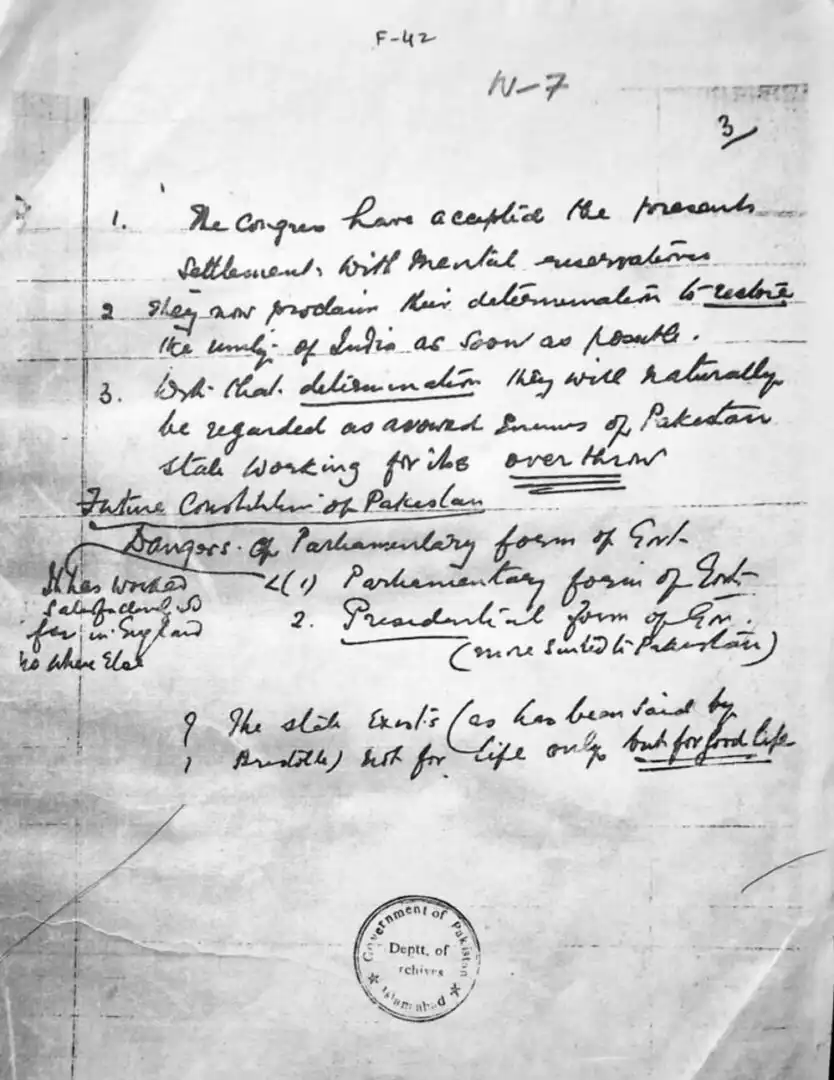 F-42
N-7
3
1. The Congress have accepted the present
Settlement, with mental reservations
2 They now proclaim their determination to restore
the unity of India as soon as possible.
3. With that determination they will naturally
be regarded as avowed Enemies of Pakistan
State working for its over throw
Future Constitution of Pakistan
Dangers of Parliamentary form of Govt-
(1) Parliamentary form of Govt-
2. Presidential form of Gov.
(more suited to Pakistan)
It has worked
satisfactorily so
far in England
no where Else
The state Exists (as has been said by
Aristotle) not for life only but for good life
Government of Pakistan
Deptt. of
rchives
Islamabad